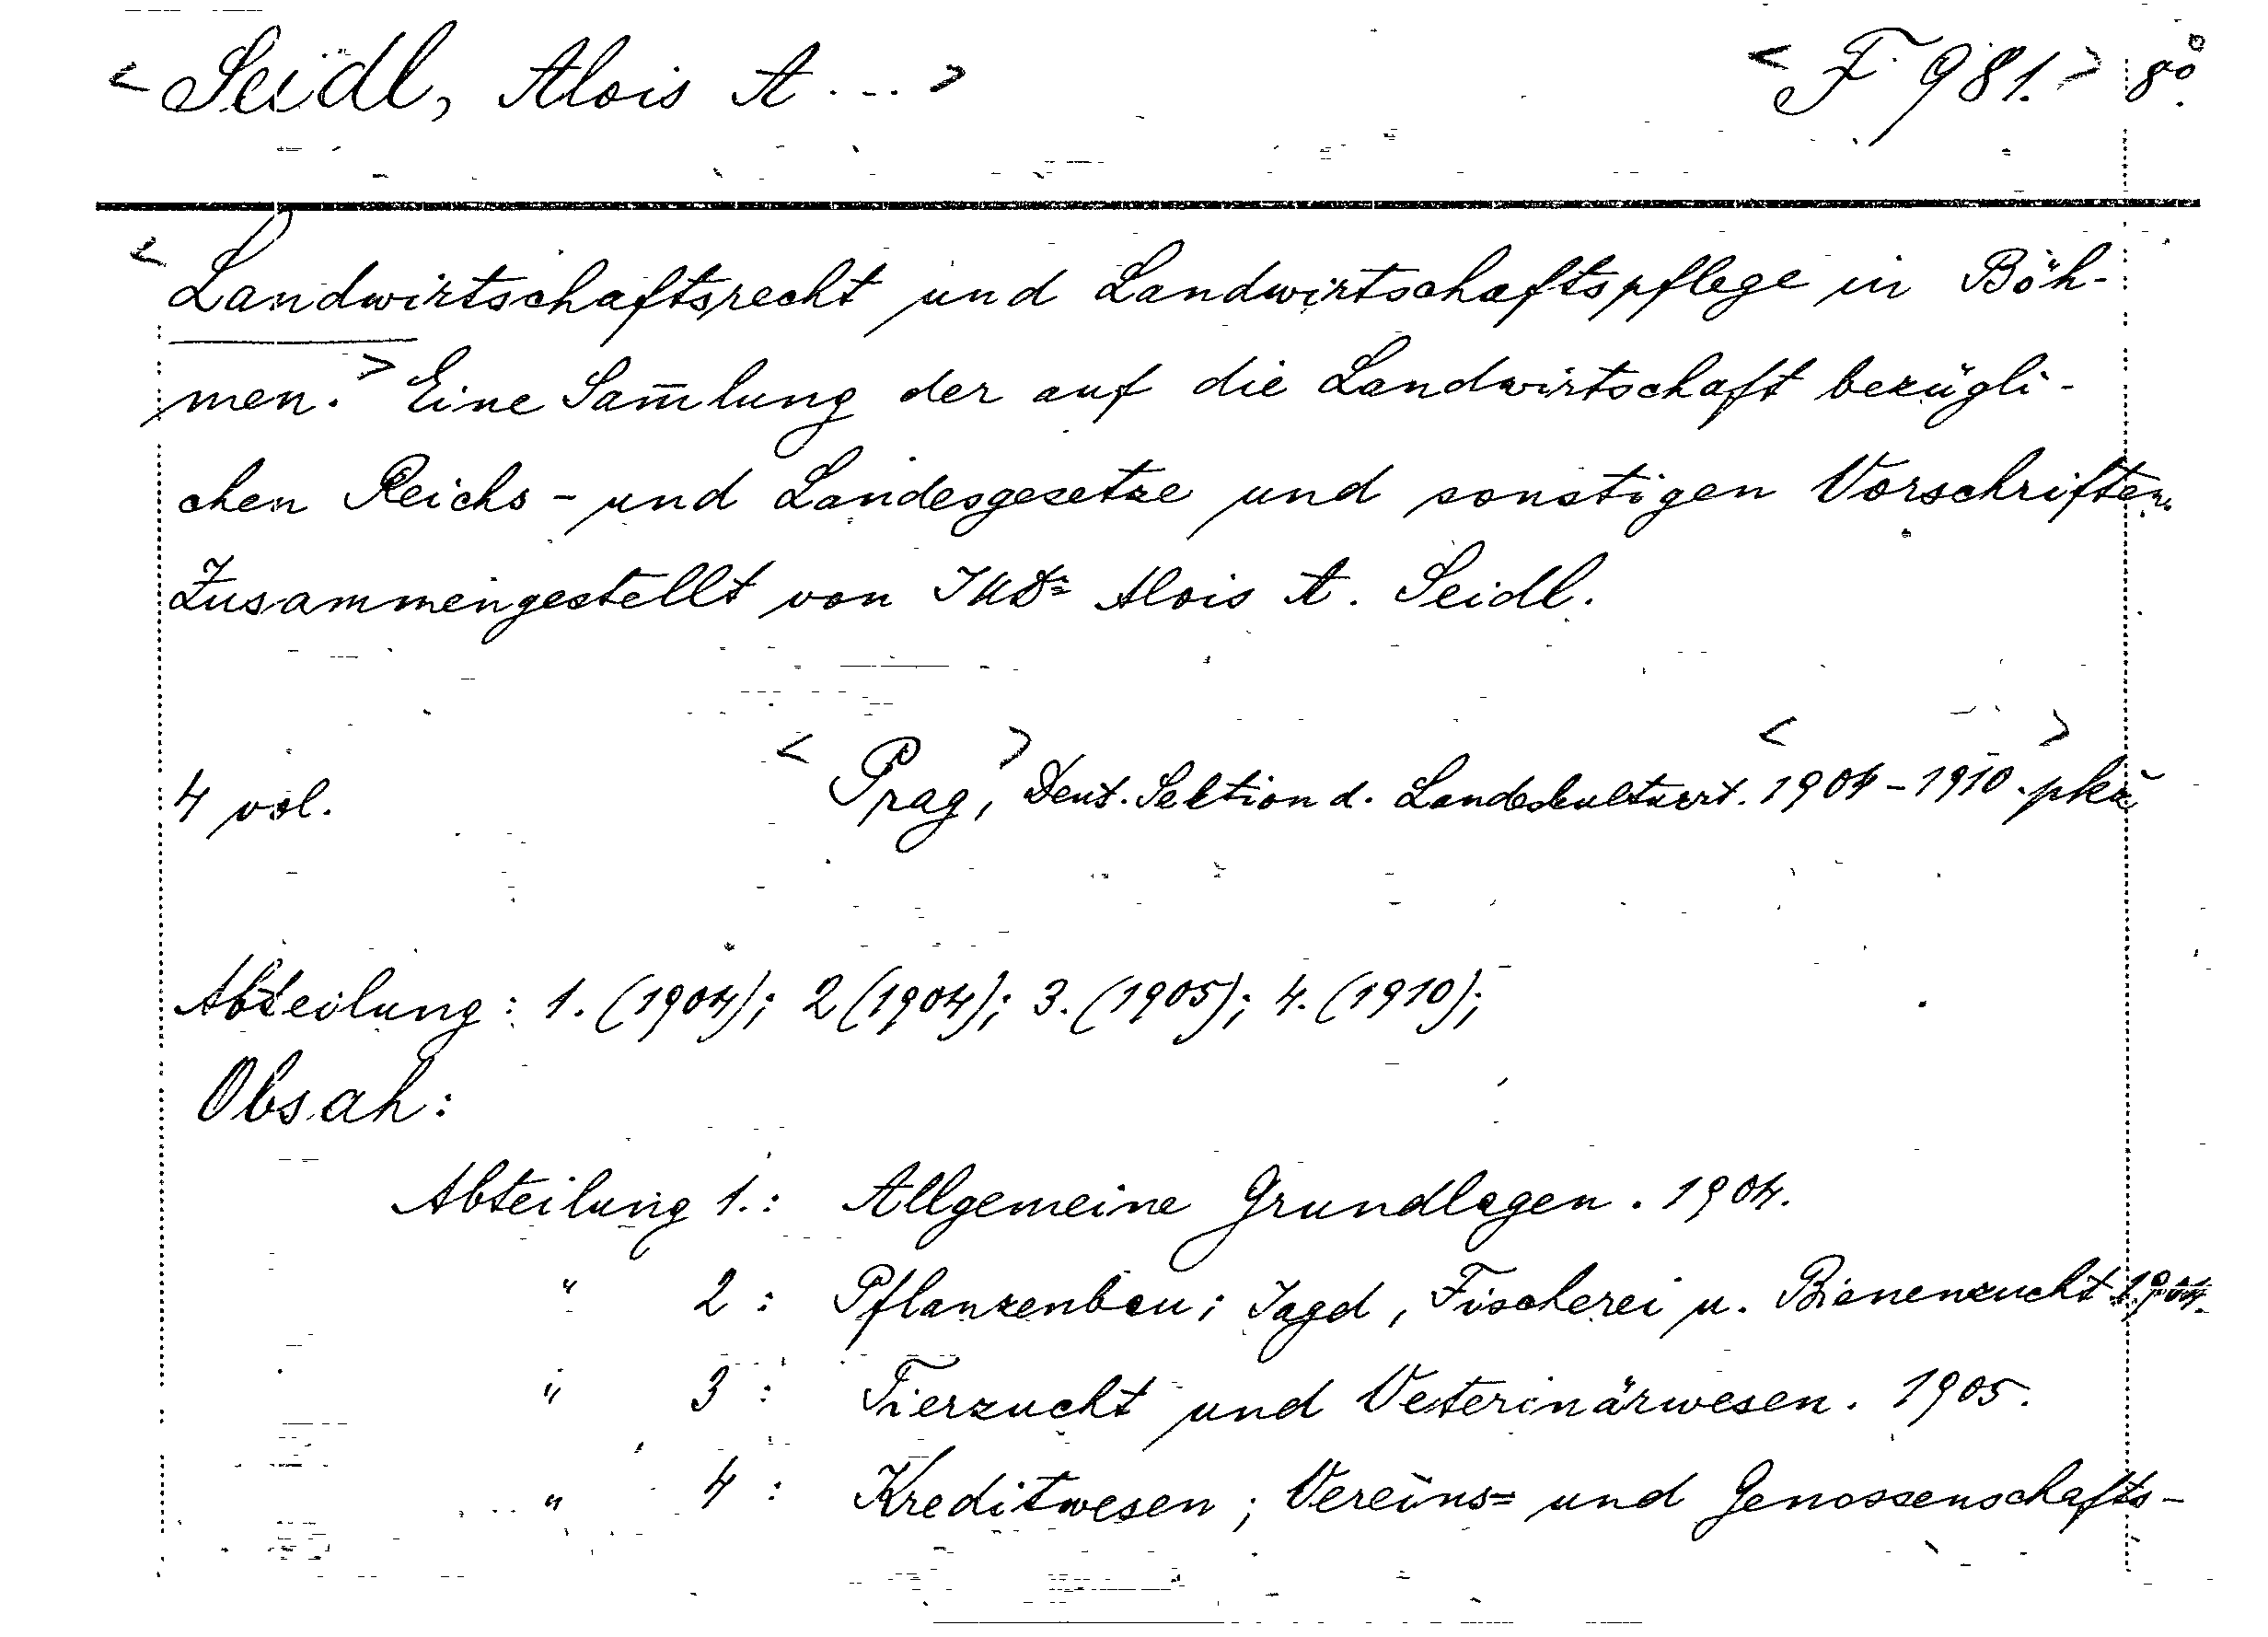 < Seidl, Alois A... > < F 981. > 8°
< Landwirtschaftsrecht und Landwirtschaftspflege in Böh-
men. > Eine Sam̅lung der auf die Landwirtschaft bezügli-
chen Reichs- und Landesgesetze und sonstigen Vorschriften.
Zusammengestellt von JUDr Alois A. Seidl.
4 vol. < Prag, > Deut. Sektion d. Landeskulturrt. < 1904-1910. >
Abteilung: 1. (1904); 2 (1904); 3. (1905); 4. (1910);
Obsah:
Abteilung 1.: Allgemeine Grundlagen. 1904.
" 2: Pflanzenbau; Jagd, Fischerei u. Bienenzucht 1904.
" 3: Tierzucht und Veterinärwesen. 1905.
" 4: Kreditwesen; Vereins= und Genossenschafts-